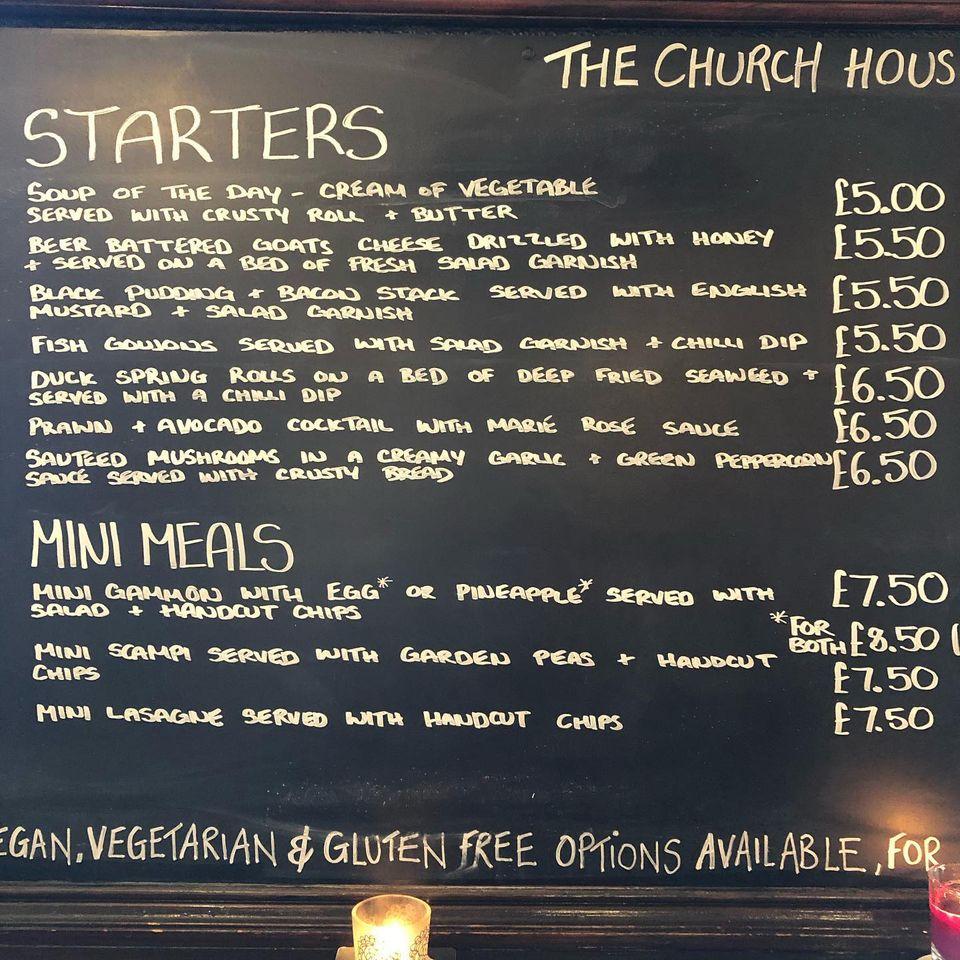 THE CHURCH HOUS
STARTERS
SOUP OF THE DAY - CREAM OF VEGETABLE £5.00
SERVED WITH CRUSTY ROLL + BUTTER
BEER BATTERED GOATS CHEESE DRIZZLED WITH HONEY £5.50
+ SERVED ON A BED OF FRESH SALAD GARNISH
BLACK PUDDING + BACON STACK SERVED WITH ENGLISH £5.50
MUSTARD + SALAD GARNISH
FISH GOUJONS SERVED WITH SALAD GARNISH + CHILLI DIP £5.50
DUCK SPRING ROLLS ON A BED OF DEEP FRIED SEAWEED + £6.50
SERVED WITH A CHILLI DIP
PRAWN + AVOCADO COCKTAIL WITH MARIÉ ROSE SAUCE £6.50
SAUTEED MUSHROOMS IN A CREAMY GARLIC + GREEN PEPPERCORN £6.50
SAUCE SERVED WITH CRUSTY BREAD
MINI MEALS
MINI GAMMON WITH EGG* OR PINEAPPLE* SERVED WITH £7.50
SALAD + HANDCUT CHIPS
*FOR BOTH £8.50 (
MINI SCAMPI SERVED WITH GARDEN PEAS + HANDCUT
CHIPS £7.50
MINI LASAGNE SERVED WITH HANDCUT CHIPS £7.50
EGAN, VEGETARIAN & GLUTEN FREE OPTIONS AVAILABLE, FOR